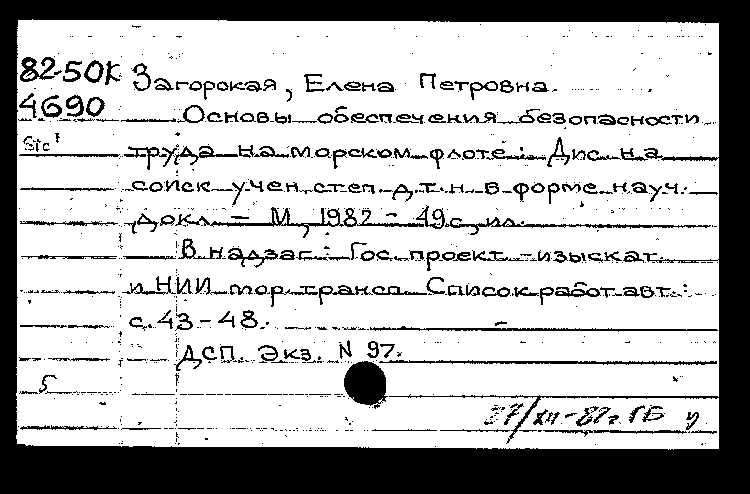 82-50К
4690
Загорская, Елена Петровна.
Основы обеспечения безопасности
труда на морском флоте: Дис. на
соиск. учен. степ. д.т.н. в форме науч.
докл. - М., 1982 - 49 с., ил.
В надзаг.: Гос. проект.-изыскат.
и НИИ мор. трансп. Список работ авт.:
с. 43-48.
ДСП. Экз. N 97.
5
27/XII-82г. ГБ